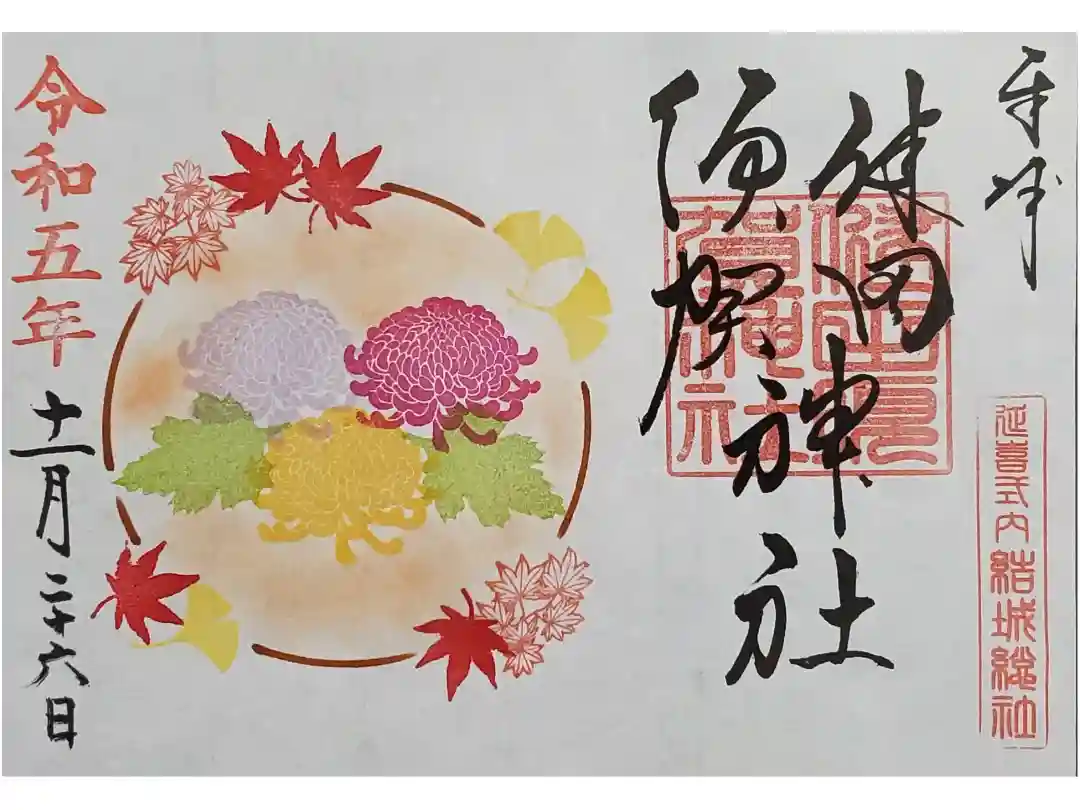 奉拝
延喜式内 結城総社
健田
須賀
神社
令和五年
十一月二十六日